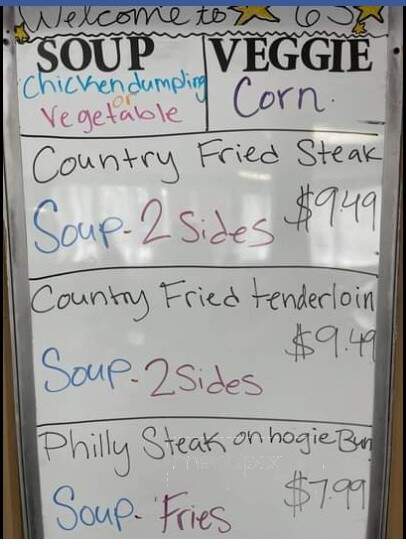 Welcome to 63
SOUP VEGGIE
Chicken dumpling Corn.
or
Vegetable
Country Fried Steak
$9.49
Soup - 2 Sides
Country Fried tenderloin
$9.49
Soup - 2 Sides
Philly Steak on hogie Bun
$7.99
Soup - Fries